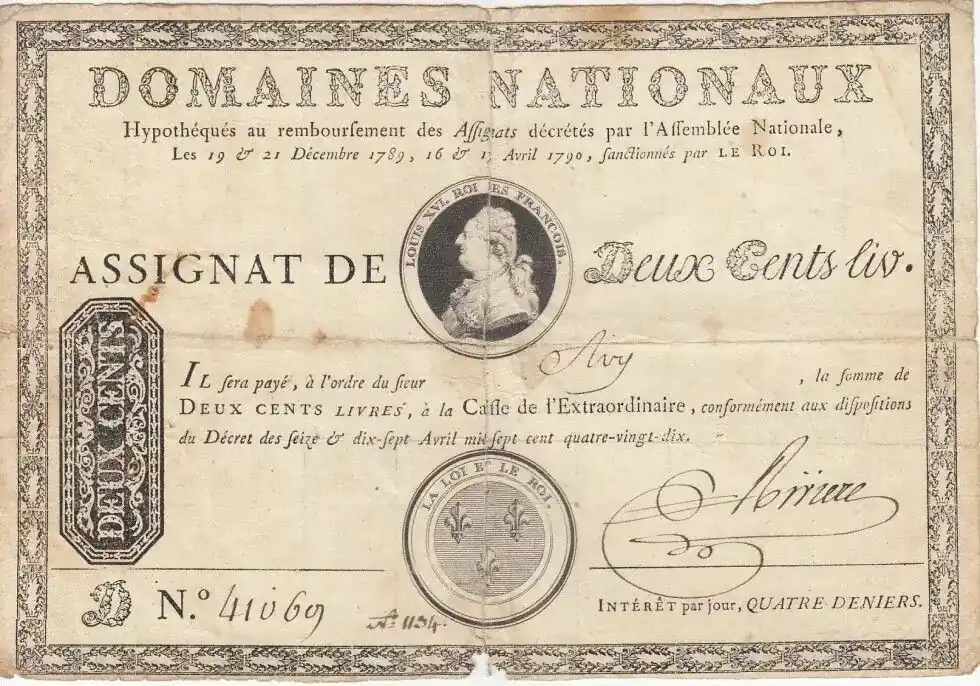 DOMAINES NATIONAUX
Hypothéqués au rembourſement des Aſſignats décrétés par l'Aſſemblée Nationale,
Les 19 & 21 Décembre 1789, 16 & 17 Avril 1790, ſanctionnés par LE ROI.
LOUIS XVI. ROI DES FRANÇOIS.
ASSIGNAT DE Deux Cents liv.
DEUX CENTS
IL ſera payé, à l'ordre du ſieur , la ſomme de
DEUX CENTS LIVRES, à la Caiſſe de l'Extraordinaire, conformément aux diſpoſitions
du Décret des ſeize & dix-ſept Avril mil ſept cent quatre-vingt-dix.
LA LOI ET LE ROI.
D N.º 41069
INTÉRÊT par jour, QUATRE DENIERS.